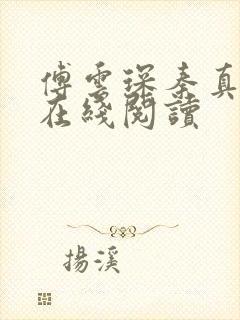 傅雲琛秦真
在綫閱讀
揚溪